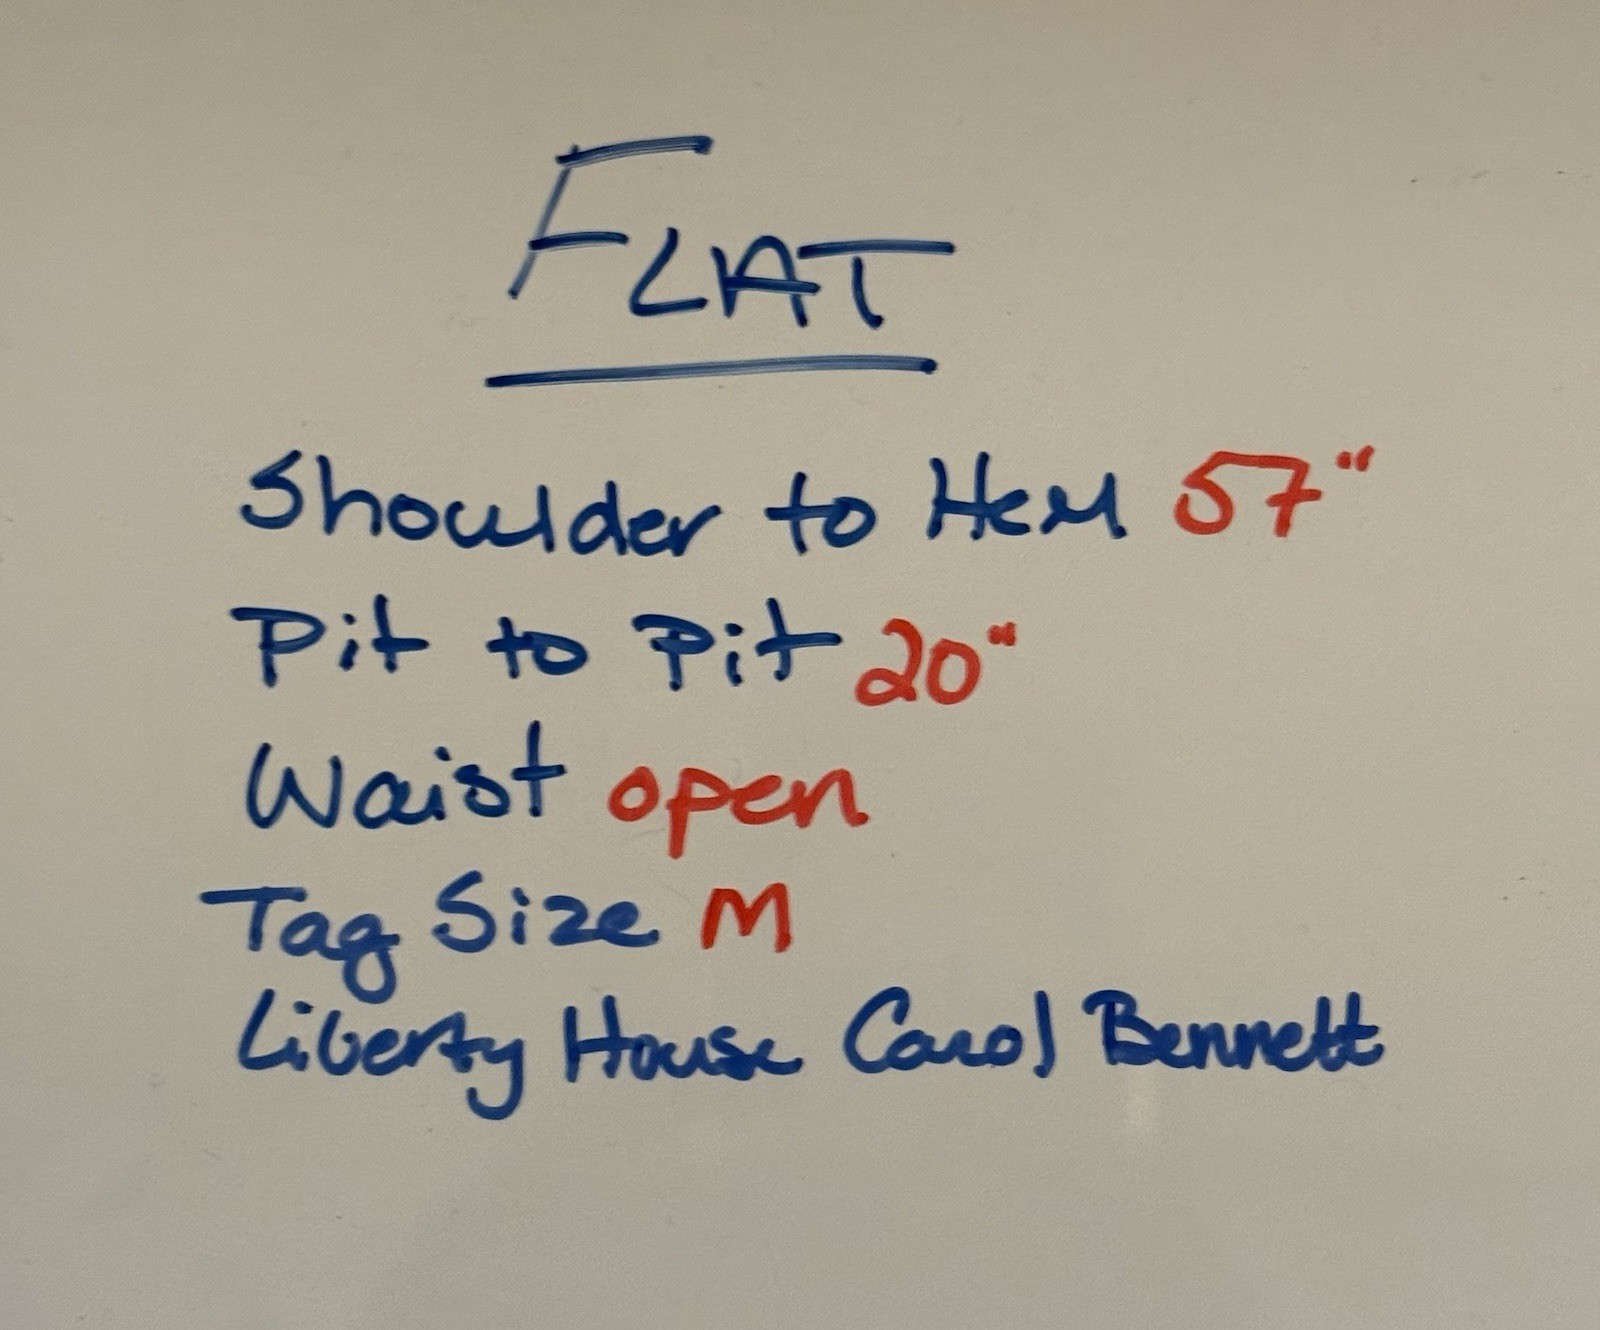 FLAT
Shoulder to Hem 57"
Pit to Pit 20"
Waist open
Tag Size M
Liberty House Carol Bennett